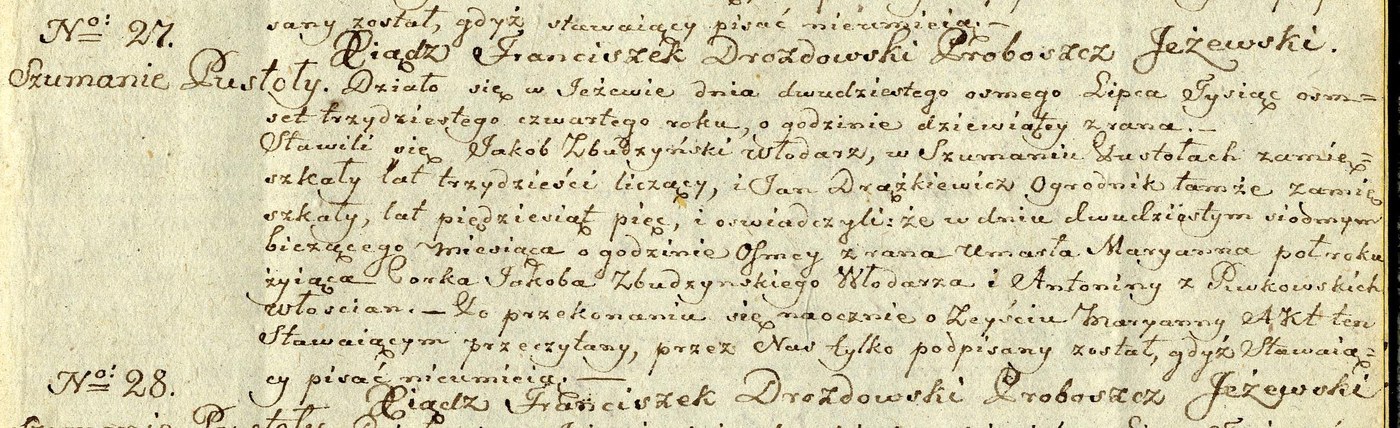 sany został, gdyż stawaiący pisać nieumieią. —
No: 27.
Xiądz Franciszek Drozdowski Proboszcz Jeżewski.
Szumanie Pustoły. Działo się w Jeżewie dnia dwudziestego osmego Lipca Tysiąc osm=
set trzydziestego czwartego roku, o godzinie dziewiąty zrana. —
Stawili się Jakob Zbudzyński włodarz, w Szumaniu Pustołach zamie=
szkały lat trzydzieści liczący, i Jan Drążkiewicz Ogrodnik tamże zamię
szkały, lat piędziesiąt pięc, i oswiadczyli: że w dniu dwudziestym siodmym
biczącego Miesiąca o godzinie Osmey zrana Umarła Maryanna poł roku
żyiąca Corka Jakoba Zbudzynskiego Włodarza i Antoniny z Piwkowskich
włoscian. — Po przekonaniu się naocznie o Zeyściu Maryanny Akt ten
Stawaiącym przeczytany, przez Nas tylko podpisany został, gdyż Stawaią=
cy pisać nieumieią. —
No: 28.
Xiądz Franciszek Drozdowski Proboszcz Jeżewski
Szumanie Pustoły